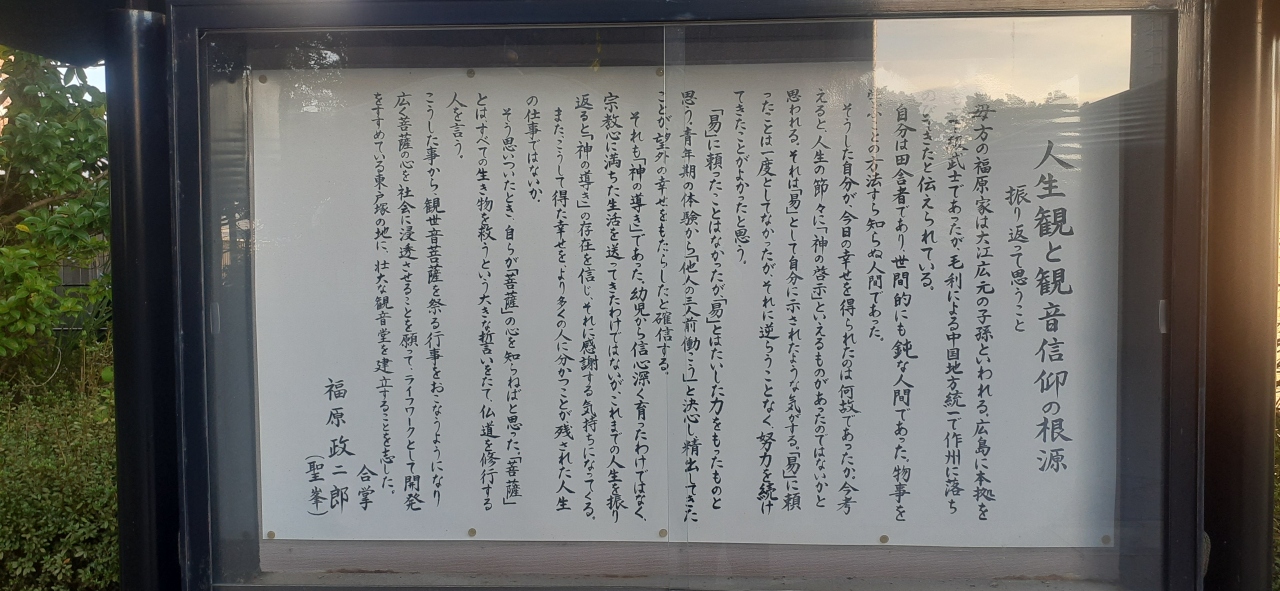 人生観と観音信仰の根源
振り返って思うこと
母方の福原家は大江広元の子孫といわれる。広島に本拠を
武士であったが毛利による中国地方統一で作州に落ち
てきたと伝えられている。
自分は田舎者であり、世間的にも鈍な人間であった。物事を
の方法すら知らぬ人間であった。
そうした自分が、今日の幸せを得られたのは何故であったか。今考
えると、人生の節々に「神の啓示」といえるものがあったのではないかと
思われる。それは「易」として自分に示されたような気がする。「易」に頼
ったことは一度としてなかったが、それに逆らうことなく、努力を続け
てきたことがよかったと思う。
「易」に頼ったことはなかったが「易」とはたいした力をもったものと
思う。青年期の体験から「他人の三人前働こう」と決心し精出してきた
ことが望外の幸せをもたらしたと確信する。
それも「神の導き」であった。幼児から信心深く育ったわけではなく、
宗教心に満ちた生活を送ってきたわけではないが、これまでの人生を振り
返ると「神の導き」の存在を信じ、それに感謝する気持ちになってくる。
また、こうして得た幸せを、より多くの人に分かつことが残された人生
の仕事ではないか。
そう思いついたとき、自らが「菩薩」の心を知らねばと思った。「菩薩」
とはすべての生き物を救うという大きな誓いをたて、仏道を修行する
人を言う。
こうした事から、観世音菩薩を祭る行事をおこなうようになり
広く菩薩の心を社会に浸透させることを願って、ライフワークとして開発
をすすめている東戸塚の地に、壮大な観音堂を建立することを志した。
合掌
福原政二郎
（聖峯）